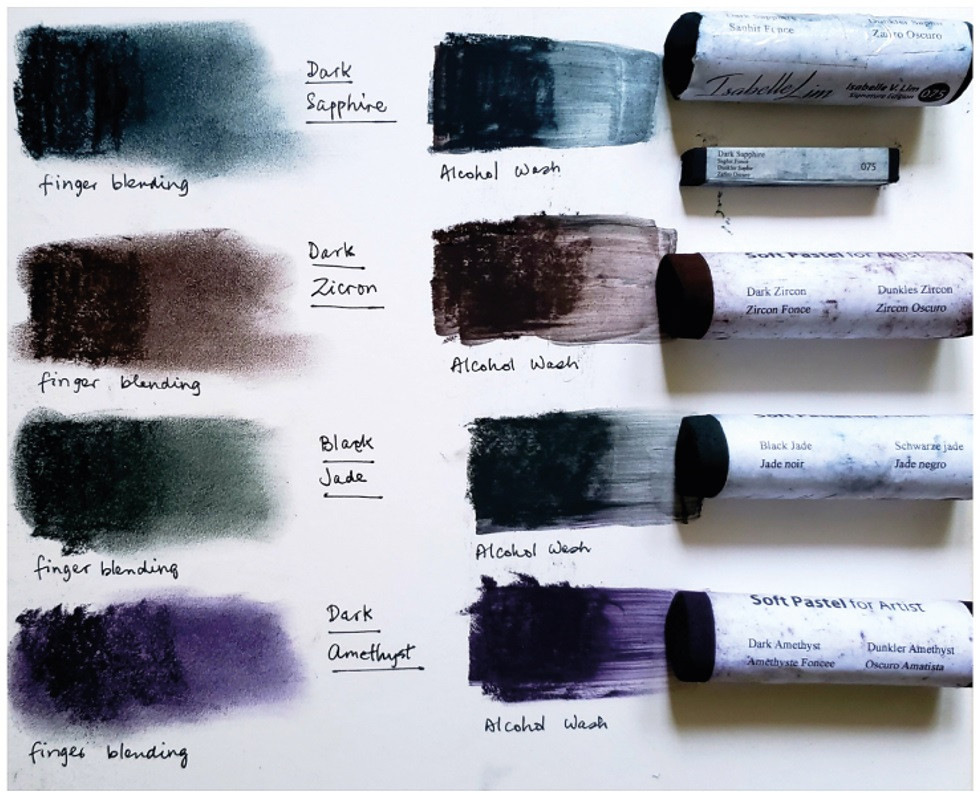 Dark
Sapphire
finger blending
Alcohol Wash
Saphir Fonce
Zafiro Oscuro
Isabelle Lim
Isabelle V. Lim
Signature Edition
075
Dark Sapphire
Saphir Fonce
Dunkler Saphir
Zafiro Oscuro
075
Dark
Zicron
finger blending
Alcohol Wash
Soft Pastel for Artist
Dark Zircon
Dunkles Zircon
Zircon Fonce
Zircon Oscuro
Black
Jade
finger blending
Alcohol Wash
Soft Pastel
Black Jade
Schwarze jade
Jade noir
Jade negro
Dark
Amethyst
finger blending
Alcohol Wash
Soft Pastel for Artist
Dark Amethyst
Dunkler Amethyst
Améthyste Foncee
Oscuro Amatista